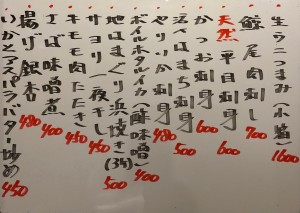 生うにつまみ(小箱) 1600
鯨尾肉刺し 700
天然平目刺身 600
かつお刺身 600
活いはば刺し 500
やりいか刺身 480
ボイルホタルイカ(酢味噌) 400
地はまぐり浜焼き(3ケ) 500
サヨリ一夜干し 450
キモモ肉たたき 450
さば味噌煮 400
揚げ銀杏 480
いかとアスパラバター炒め 450